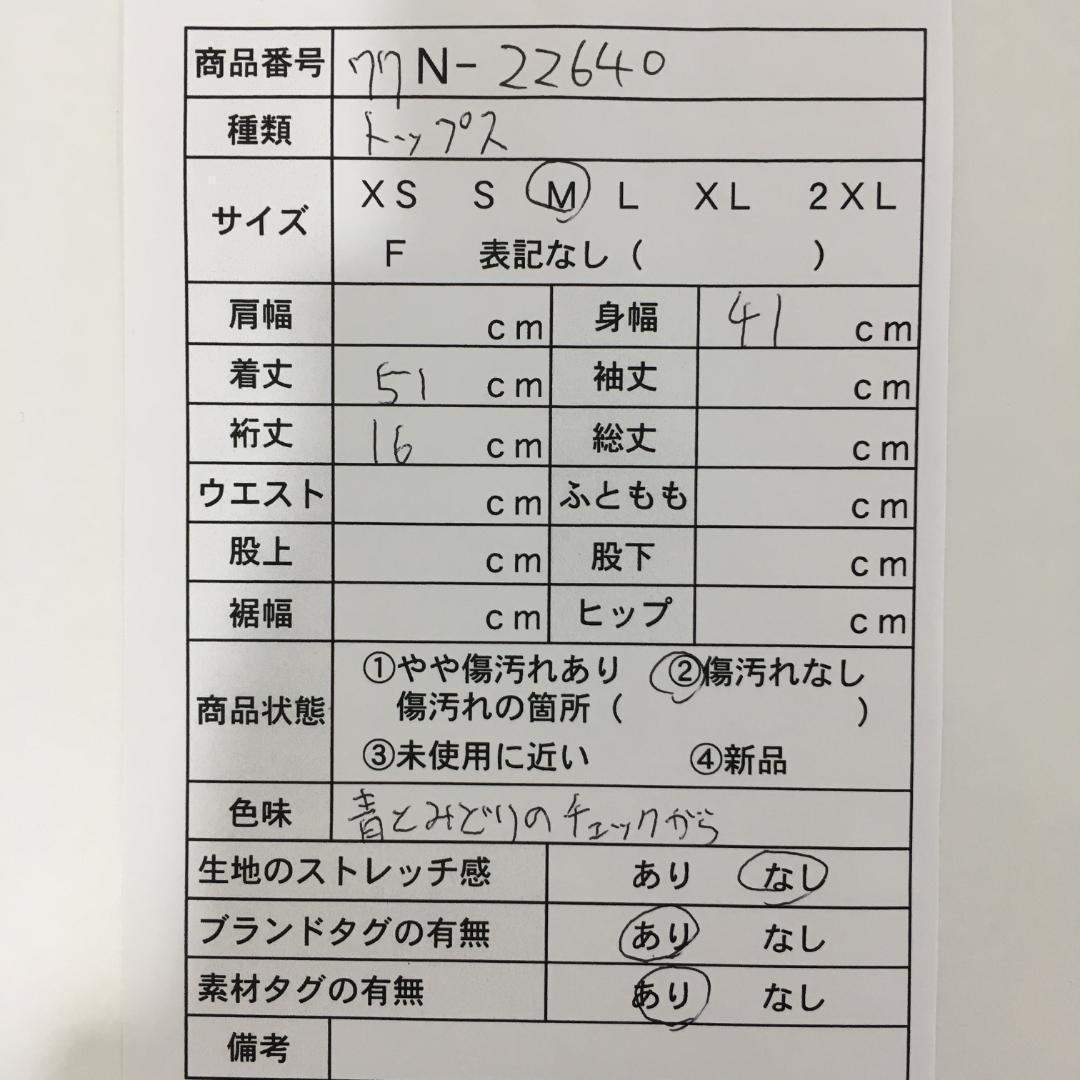 商品番号 77N-22640
種類 トップス
サイズ XS S M L XL 2XL
F 表記なし( )
肩幅 cm 身幅 41 cm
着丈 51 cm 袖丈 cm
裄丈 16 cm 総丈 cm
ウエスト cm ふともも cm
股上 cm 股下 cm
裾幅 cm ヒップ cm
商品状態 ①やや傷汚れあり ②傷汚れなし
傷汚れの箇所( )
③未使用に近い ④新品
色味 青とみどりのチェックがら
生地のストレッチ感 あり なし
ブランドタグの有無 あり なし
素材タグの有無 あり なし
備考